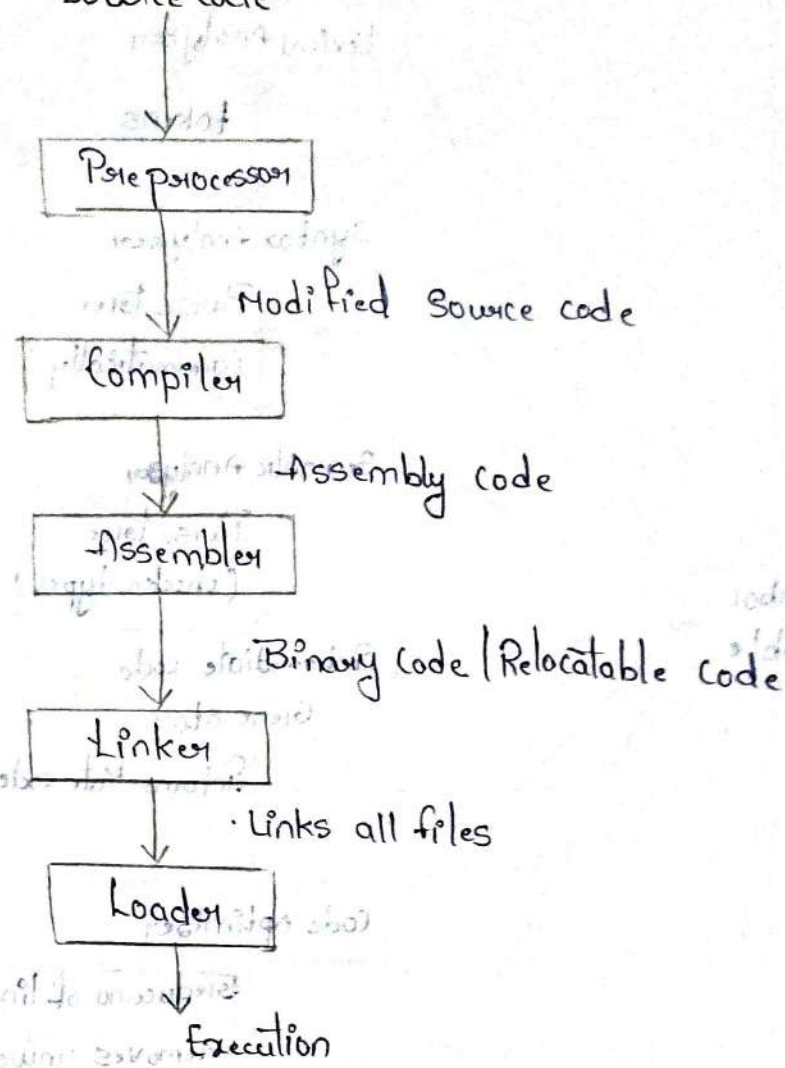 Source code
Preprocessor
Modified Source code
Compiler
Assembly code
Assembler
Binary code / Relocatable code
Linker
. Links all files
Loader
Execution